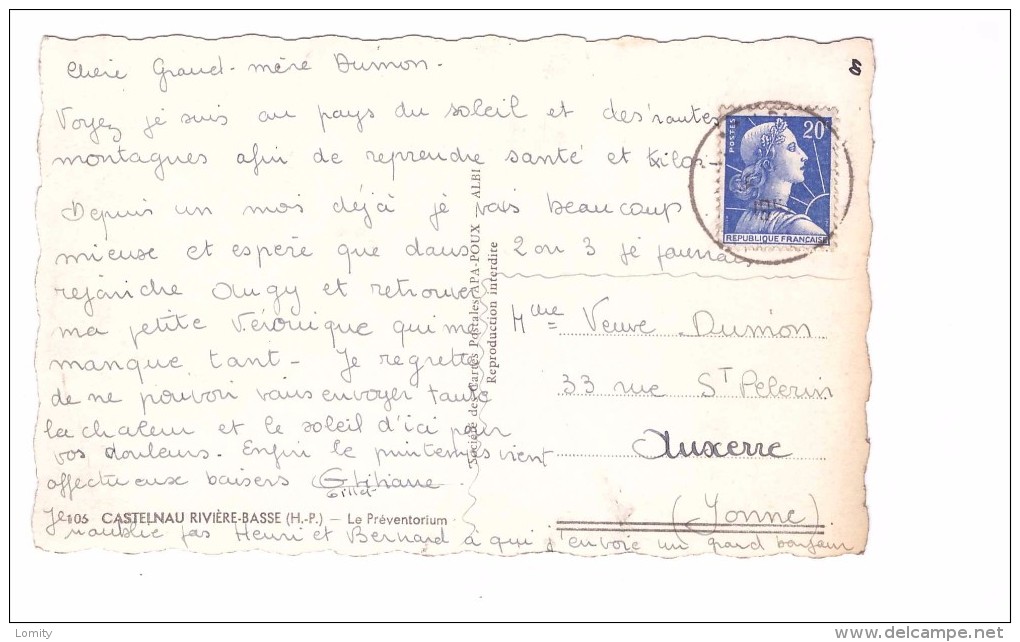 Chère Grand-mère Dumon-
8
Voyez je suis au pays du soleil et des hautes
montagnes afin de reprendre santé et kilos
Depuis un mois déjà je vais beaucoup
mieux et espère que dans 2 ou 3 je pourrai
rejoindre Augy et retrouver
ma petite Véronique qui me
manque tant - Je regrette
de ne pouvoir vous envoyer toute
la chaleur et le soleil d'ici pour
vos douleurs. Enfin le printemps vient
affectueux baisers
105 CASTELNAU RIVIÈRE-BASSE (H.-P.) — Le Préventorium
Je n'oublie pas Henri et Bernard à qui j'envoie un grand bonjour
Société des Cartes Postales APA-POUX — ALBI
Reproduction interdite
POSTES
20F
REPUBLIQUE FRANÇAISE
Mme Veuve Dumon
33 rue St Pelerin
Auxerre
(Yonne)
Lomity
www.delcampe.net